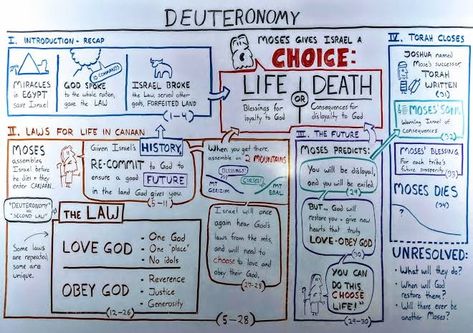 DEUTERONOMY
I. INTRODUCTION - RECAP
MIRACLES
in
EGYPT
save Israel
GOD SPOKE
to the whole nation,
gave the LAW
10 COMMANDS
ISRAEL BROKE
the Law, served other
gods, FORFEITED LAND
(1-4)
MOSES GIVES ISRAEL A
CHOICE:
LIFE OR DEATH
Blessings for
loyalty to God
Consequences for
disloyalty to God
IV. TORAH CLOSES
JOSHUA named
Mose's successor
TORAH
WRITTEN
(31)
MOSES' SONG
Warning Israel of
consequences
(32)
MOSES' BLESSING
For each tribe's
future prosperity
(33)
MOSES DIES
(34)
UNRESOLVED:
• What will they do?
• When will God
restore them?
• Will there ever be
another Moses?
II. LAWS FOR LIFE IN CANAAN
MOSES
assembles
Israel
before
he dies & they
enter CANAAN.
Given Israel's HISTORY,
RE-COMMIT to God to
ensure a good
FUTURE
in the land God gives you.
(5-11)
"DEUTERONOMY"
= "SECOND LAW"
Some laws
are repeated,
some are
unique.
THE LAW
LOVE GOD
• One God
• One "place"
• No idols
OBEY GOD
• Reverence
• Justice
• Generosity
(12-26)
When you get there,
assemble on 2 MOUNTAINS
BLESSINGS!
CURSES!
MT
GERIZIM
MT
EBAL
Israel will once
again hear God's
laws from the mts.
and will need to
choose to love and
obey their God.
(27-28)
(5-28)
III. THE FUTURE
MOSES PREDICTS:
You will be disloyal,
and you will be exiled.
(29)
BUT... God will
restore you & give new
hearts that truly
LOVE & OBEY GOD
(30)
YOU CAN
DO THIS
CHOOSE
LIFE!
(29-30)